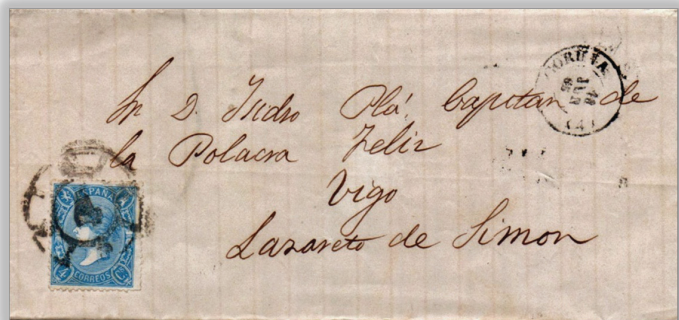 CORUÑA
JUN
65
(4)
Sr D. Isidro Plá, Capitan de
la Polacra Feliz
Vigo
Lazareto de Simon
ESPAÑA
4 Cs
CORREOS